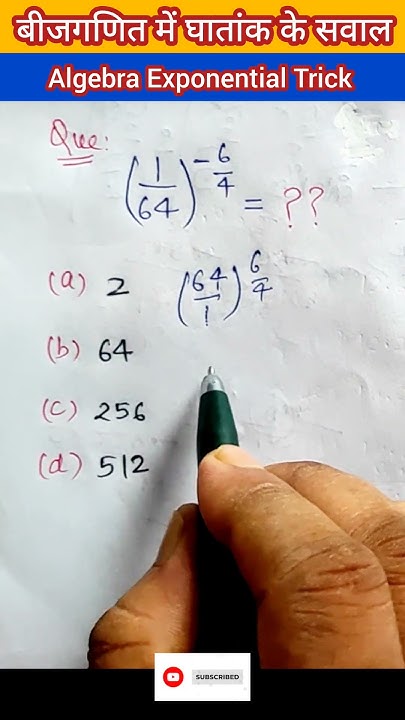 बीजगणित में घातांक के सवाल
Algebra Exponential Trick
Que:
(1/64)^-6/4 = ??
(a) 2
(64/1)^6/4
(b) 64
(c) 256
(d) 512
SUBSCRIBED